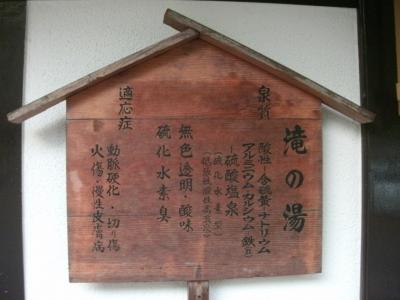 滝の湯
泉質
酸性-含硫黄-ナトリウム
アルミニウム・カルシウム・鉄(Ⅱ)
-硫酸塩泉
(硫化水素型)
無色透明・酸味
硫化水素臭
適応症
動脈硬化・切り傷
火傷・慢性皮膚病